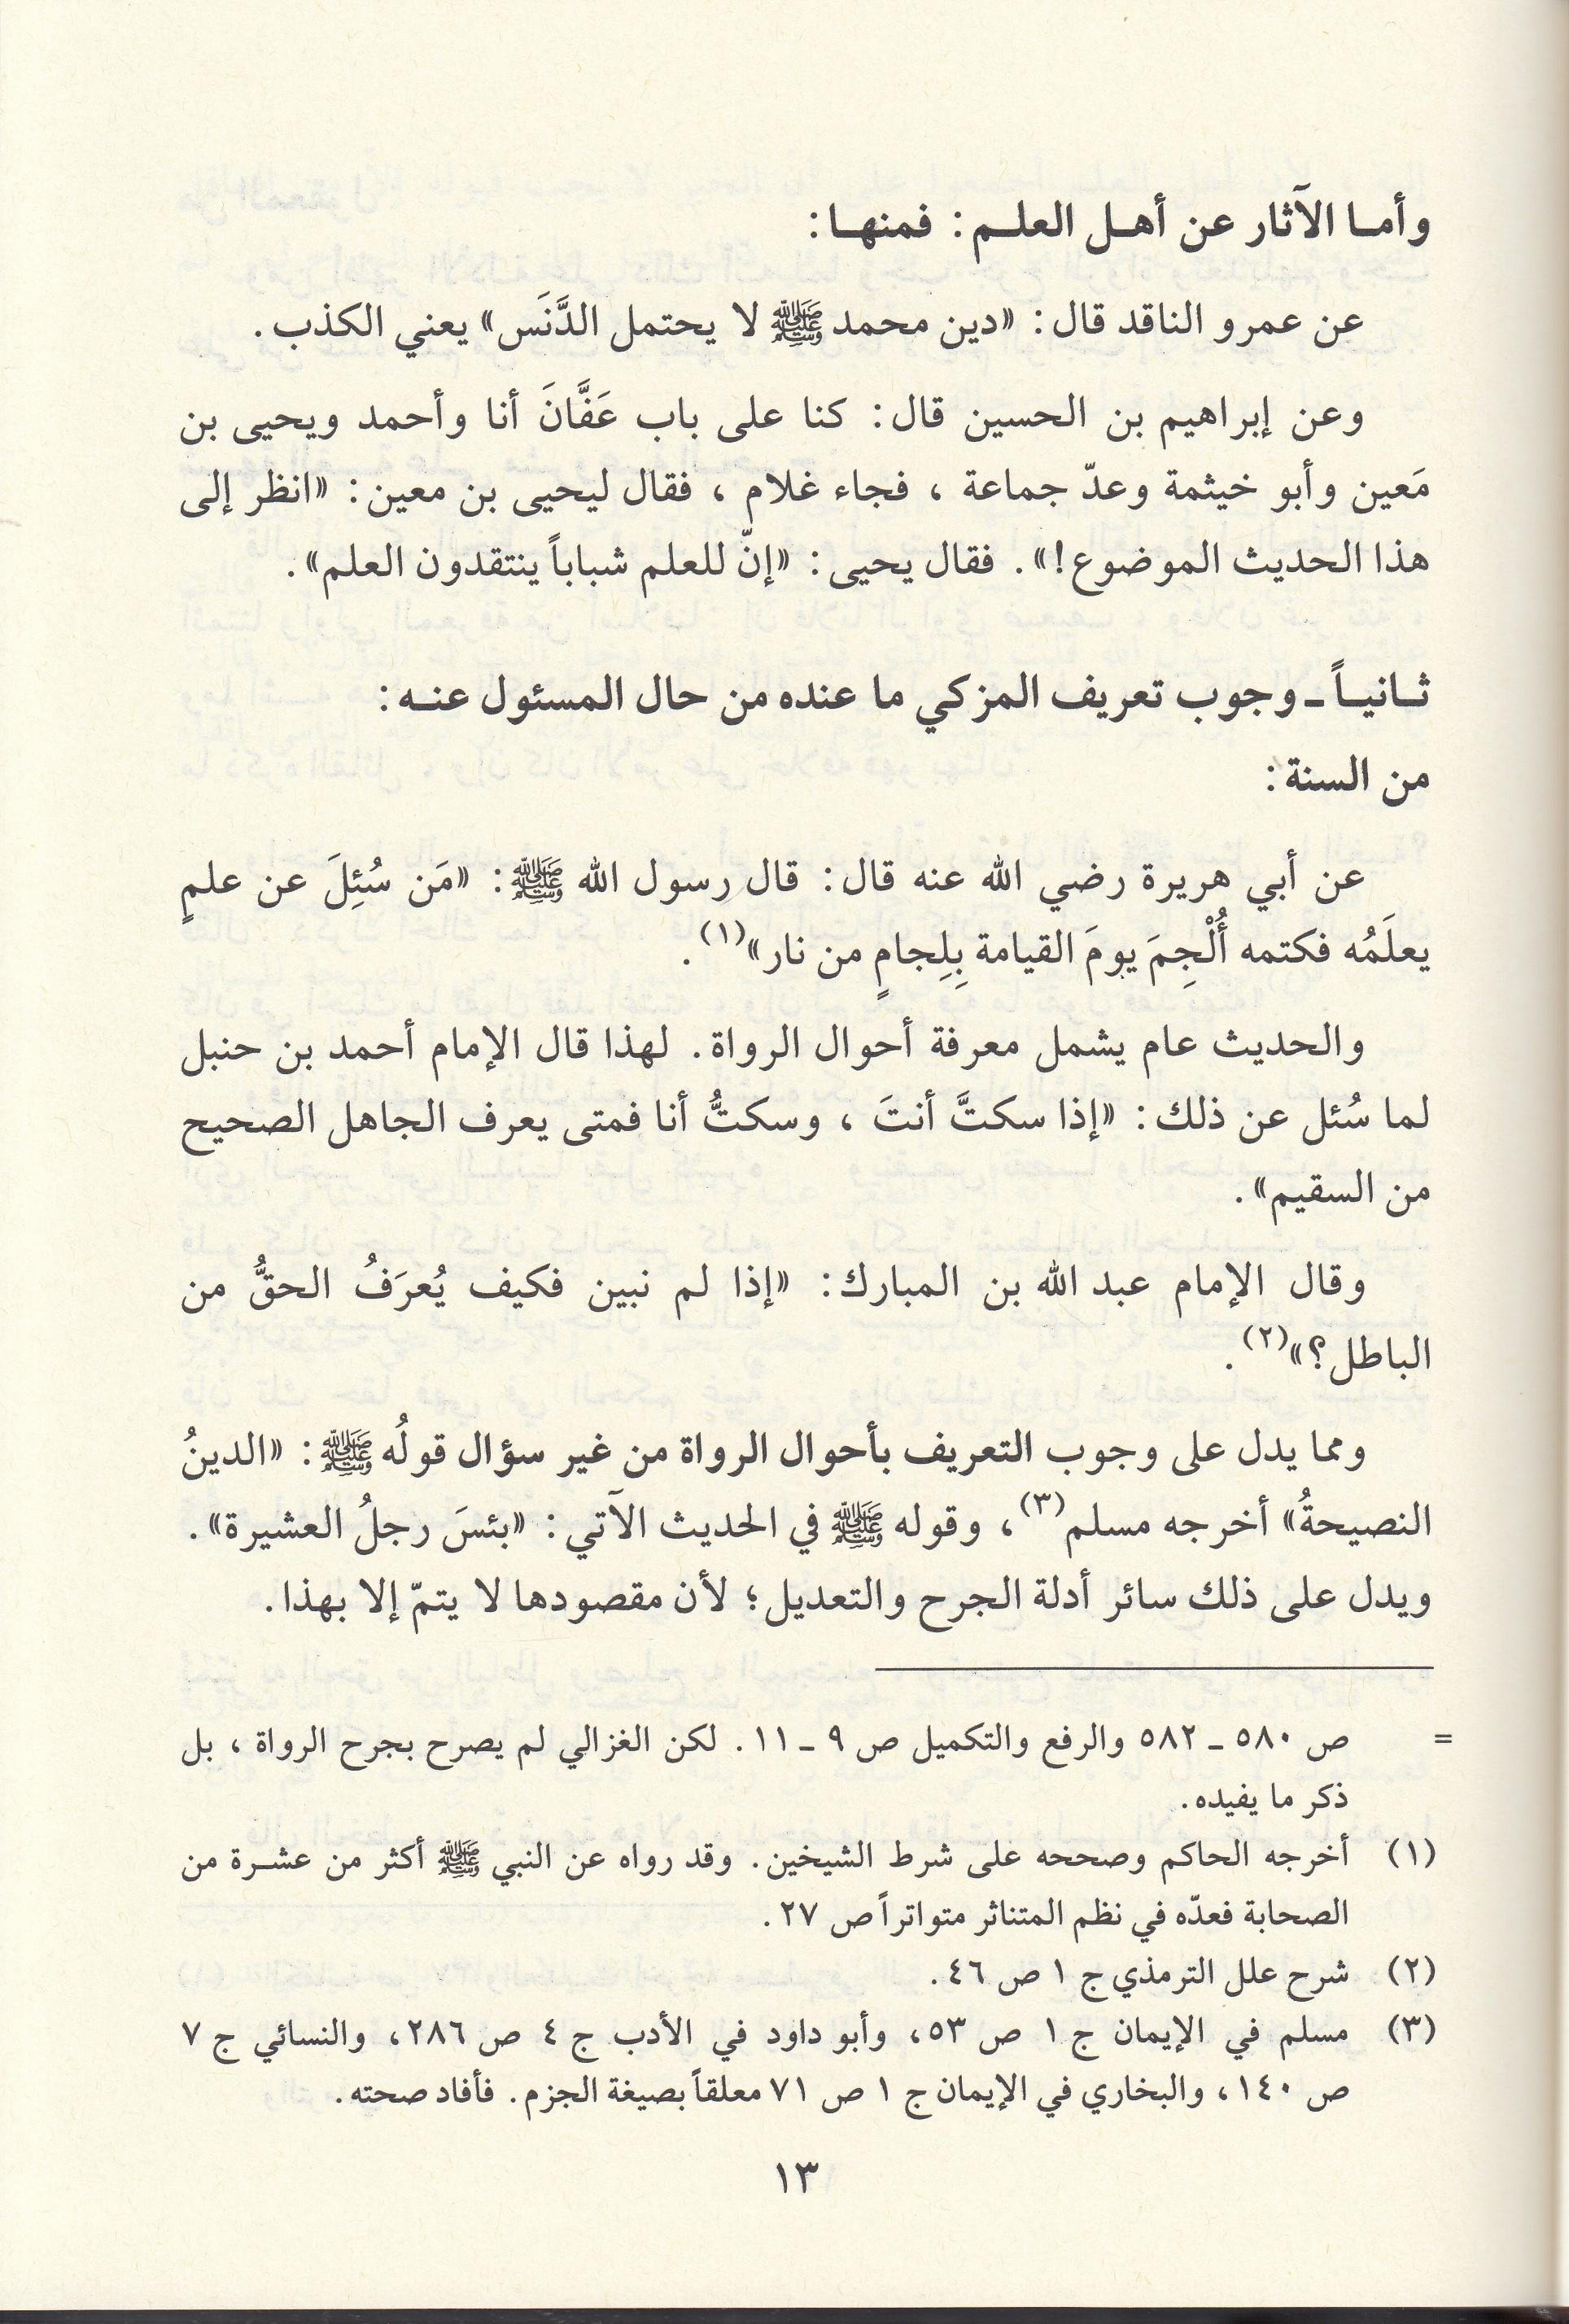 وأما الآثار عن أهل العلم: فمنها:
عن عمرو الناقد قال: «دين محمد ﷺ لا يحتمل الدَّنَس» يعني الكذب.
وعن إبراهيم بن الحسين قال: كنا على باب عَفَّانَ أنا وأحمد ويحيى بن
مَعين وأبو خيثمة وعدّ جماعة، فجاء غلام، فقال ليحيى بن معين: «انظر إلى
هذا الحديث الموضوع!». فقال يحيى: «إنّ للعلم شباباً ينتقدون العلم».
ثانياً ـ وجوب تعريف المزكي ما عنده من حال المسئول عنه:
من السنة:
عن أبي هريرة رضي الله عنه قال: قال رسول الله ﷺ: «مَن سُئِلَ عن علمٍ
يعلَمُه فكتمه أُلْجِمَ يومَ القيامة بِلِجامٍ من نار»(١).
والحديث عام يشمل معرفة أحوال الرواة. لهذا قال الإمام أحمد بن حنبل
لما سُئل عن ذلك: «إذا سكتَّ أنتَ، وسكتُّ أنا فمتى يعرف الجاهل الصحيح
من السقيم».
وقال الإمام عبد الله بن المبارك: «إذا لم نبين فكيف يُعرَفُ الحقُّ من
الباطل؟»(٢).
ومما يدل على وجوب التعريف بأحوال الرواة من غير سؤال قولُه ﷺ: «الدينُ
النصيحةُ» أخرجه مسلم(٣)، وقوله ﷺ في الحديث الآتي: «بئسَ رجلُ العشيرة».
ويدل على ذلك سائر أدلة الجرح والتعديل؛ لأن مقصودها لا يتمّ إلا بهذا.
= ص ٥٨٠ ـ ٥٨٢ والرفع والتكميل ص ٩ ـ ١١. لكن الغزالي لم يصرح بجرح الرواة، بل
ذكر ما يفيده.
(١) أخرجه الحاكم وصححه على شرط الشيخين. وقد رواه عن النبي ﷺ أكثر من عشرة من
الصحابة فعدّه في نظم المتناثر متواتراً ص ٢٧.
(٢) شرح علل الترمذي ج ١ ص ٤٦.
(٣) مسلم في الإيمان ج ١ ص ٥٣، وأبو داود في الأدب ج ٤ ص ٢٨٦، والنسائي ج ٧
ص ١٤٠، والبخاري في الإيمان ج ١ ص ٧١ معلقاً بصيغة الجزم. فأفاد صحته.
١٣